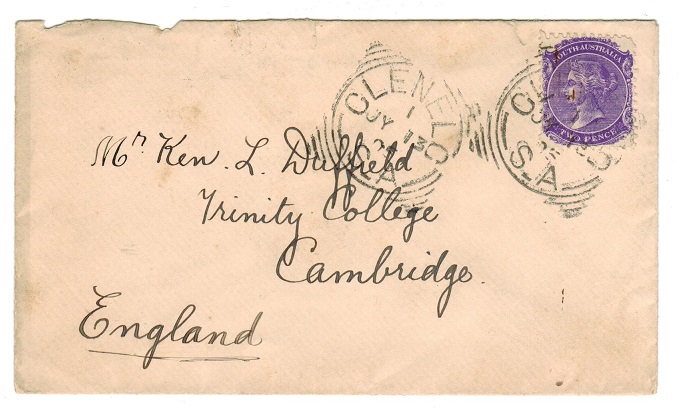 SOUTH AUSTRALIA
TWO PENCE
GLENELG
1
JY 13
S.A
S.A
Mr Ken. L. Duffield
Trinity College
Cambridge.
England